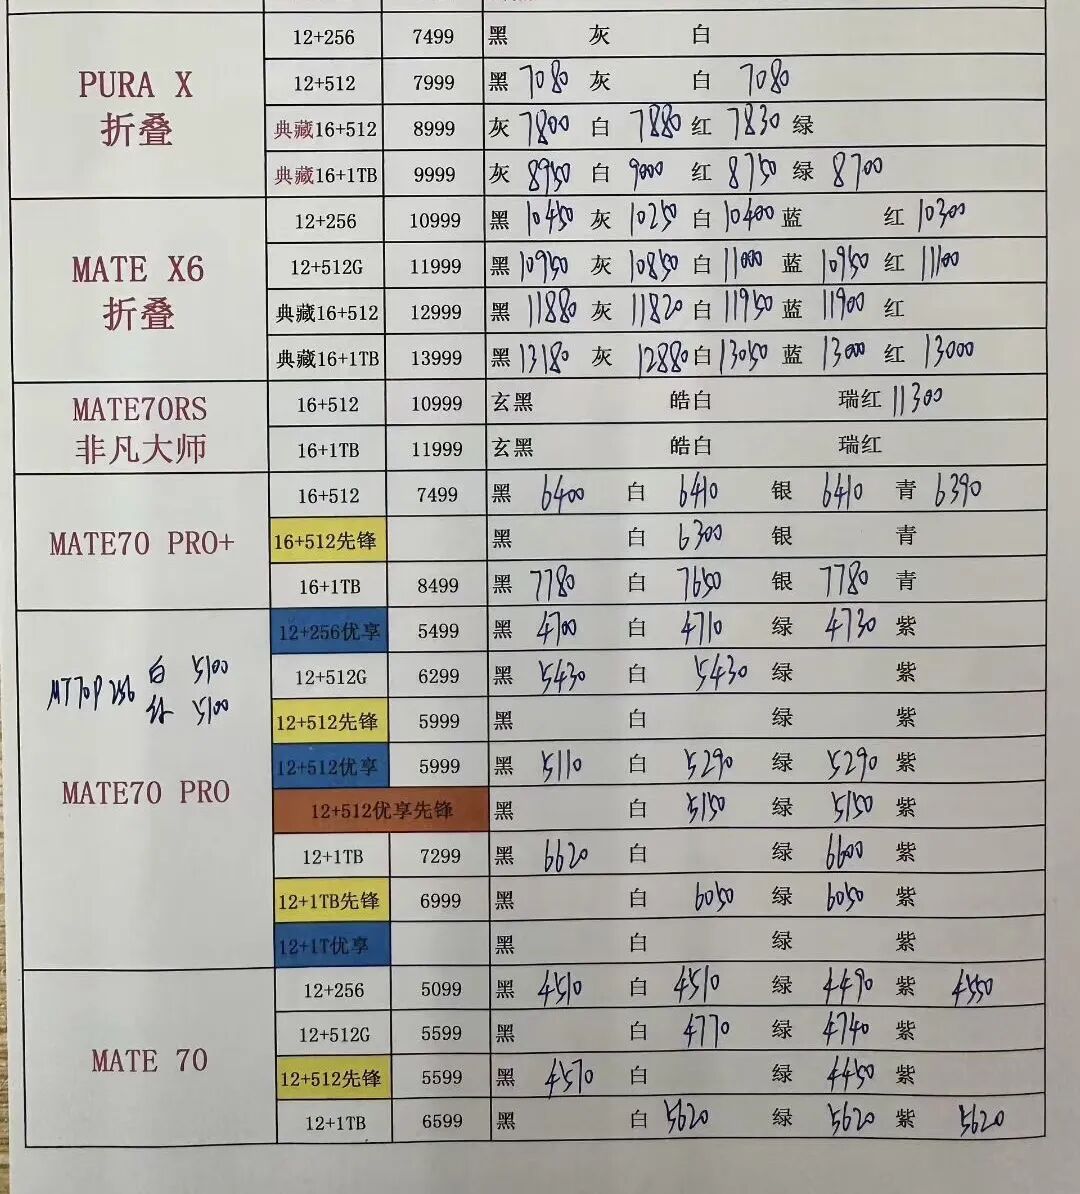 PURA X
折叠
12+256 7499 黑 灰 白
12+512 7999 黑 7080 灰 白 7080
典藏16+512 8999 灰 7800 白 7880 红 7830 绿
典藏16+1TB 9999 灰 8950 白 9000 红 8750 绿 8700
MATE X6
折叠
12+256 10999 黑 10450 灰 10250 白 10400 蓝 红 10300
12+512G 11999 黑 10950 灰 10850 白 11000 蓝 10950 红 11100
典藏16+512 12999 黑 11880 灰 11820 白 11950 蓝 11900 红
典藏16+1TB 13999 黑 13180 灰 12880 白 13050 蓝 13000 红 13000
MATE70RS
非凡大师
16+512 10999 玄黑 皓白 瑞红 11300
16+1TB 11999 玄黑 皓白 瑞红
MATE70 PRO+
16+512 7499 黑 6400 白 6410 银 6410 青 6390
16+512先锋 黑 白 6300 银 青
16+1TB 8499 黑 7780 白 7650 银 7780 青
MT70P 256 白 5100
5100
MATE70 PRO
12+256优享 5499 黑 4700 白 4710 绿 4730 紫
12+512G 6299 黑 5430 白 5430 绿 紫
12+512先锋 5999 黑 白 绿 紫
12+512优享 5999 黑 5110 白 5290 绿 5290 紫
12+512优享先锋 黑 白 5150 绿 5150 紫
12+1TB 7299 黑 6620 白 绿 6600 紫
12+1TB先锋 6999 黑 白 6050 绿 6050 紫
12+1T优享 黑 白 绿 紫
MATE 70
12+256 5099 黑 4510 白 4510 绿 4490 紫 4550
12+512G 5599 黑 白 4770 绿 4740 紫
12+512先锋 5599 黑 4570 白 绿 4450 紫
12+1TB 6599 黑 白 5620 绿 5620 紫 5620